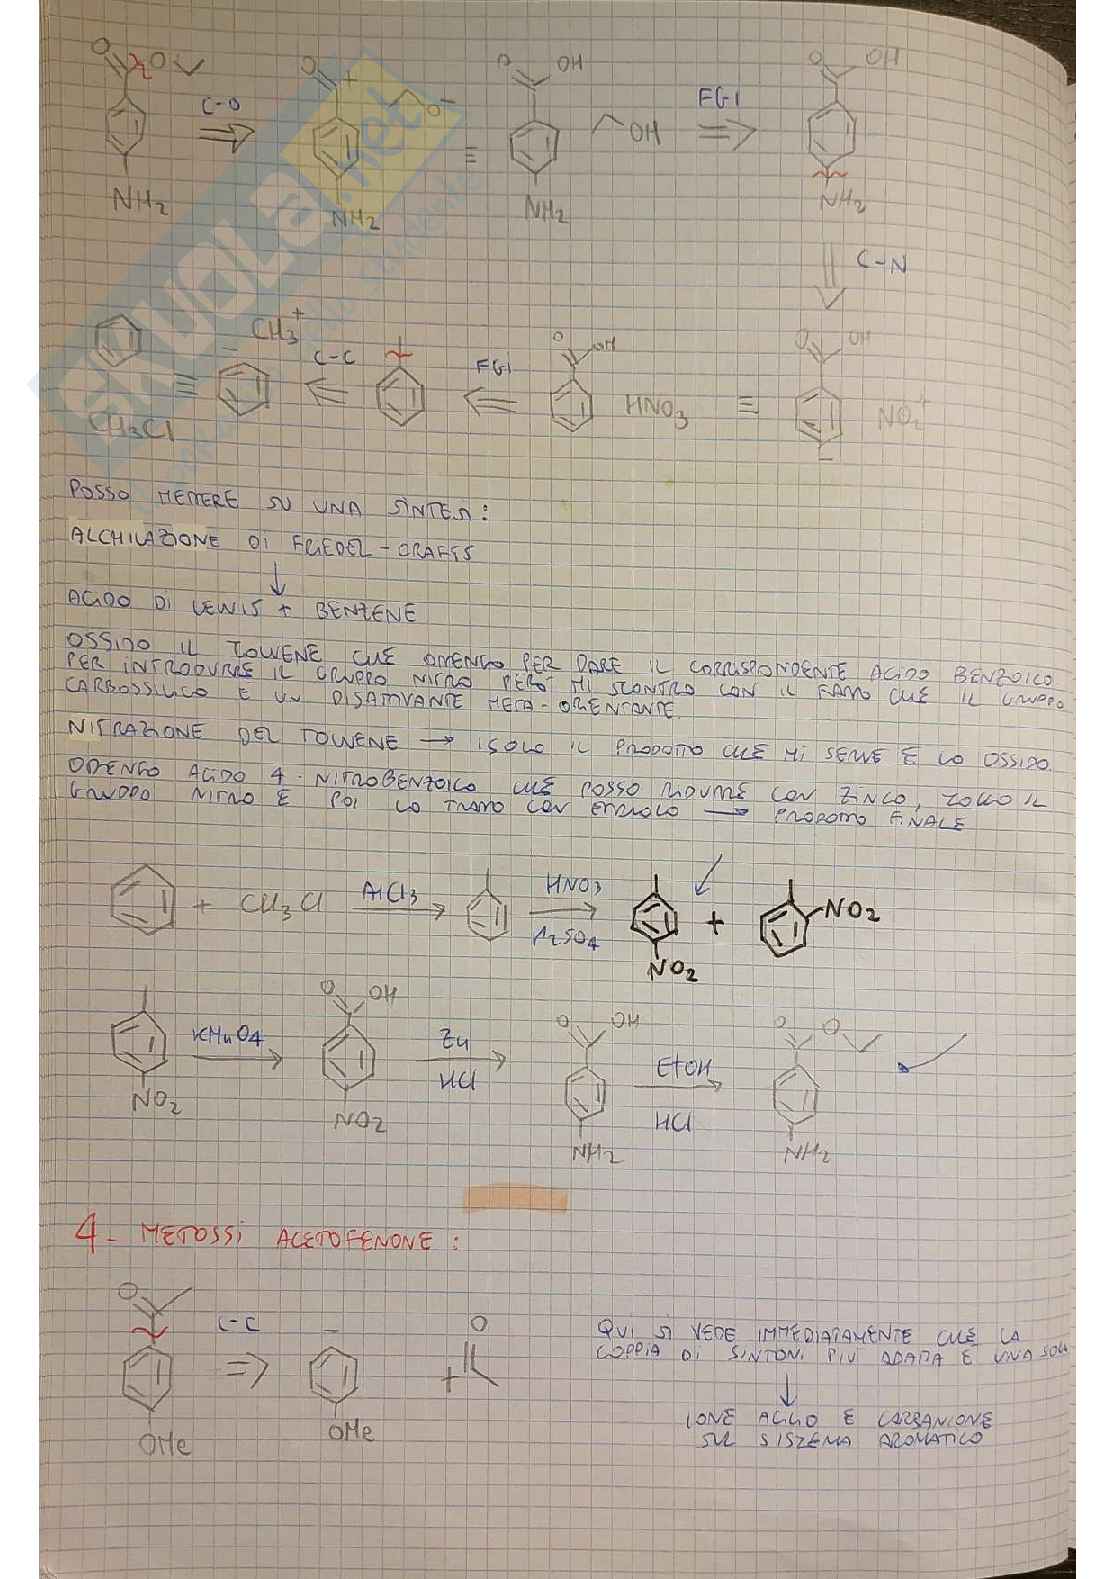 O O O O OH O OH
C-O FGI
O⁻ OH
NH2 NH2 NH2 NH2
C-N
CH3⁺ C-C FGI O OH O OH
CH3Cl HNO3 NO2⁺
SKUOLA.net
POSSO METTERE SU UNA SINTESI:
ALCHILAZIONE DI FRIEDEL-CRAFTS
ACIDO DI LEWIS + BENZENE
OSSIDO IL TOLUENE CHE OTTENGO PER DARE IL CORRISPONDENTE ACIDO BENZOICO
PER INTRODURRE IL GRUPPO NITRO PERÒ MI SCONTRO CON IL FATTO CHE IL GRUPPO
CARBOSSILICO È UN DISATTIVANTE META-ORIENTANTE.
NITRAZIONE DEL TOLUENE → ISOLO IL PRODOTTO CHE MI SERVE E LO OSSIDO.
OTTENGO ACIDO 4-NITROBENZOICO CHE POSSO RIDURRE CON ZINCO, TOLGO IL
GRUPPO NITRO E POI LO TRATTO CON ETANOLO → PRODOTTO FINALE
+ CH3Cl AlCl3 HNO3 H2SO4 NO2 + NO2
NO2 KMnO4 O OH NO2 Zn HCl O OH NH2 EtOH HCl O O NH2
4- METOSSI ACETOFENONE:
O C-C OMe OMe + O
QUI SI VEDE IMMEDIATAMENTE CHE LA
COPPIA DI SINTONI PIÙ ADATTA È UNA SOLA
IONE ACILIO E CARBANIONE
SUL SISTEMA AROMATICO